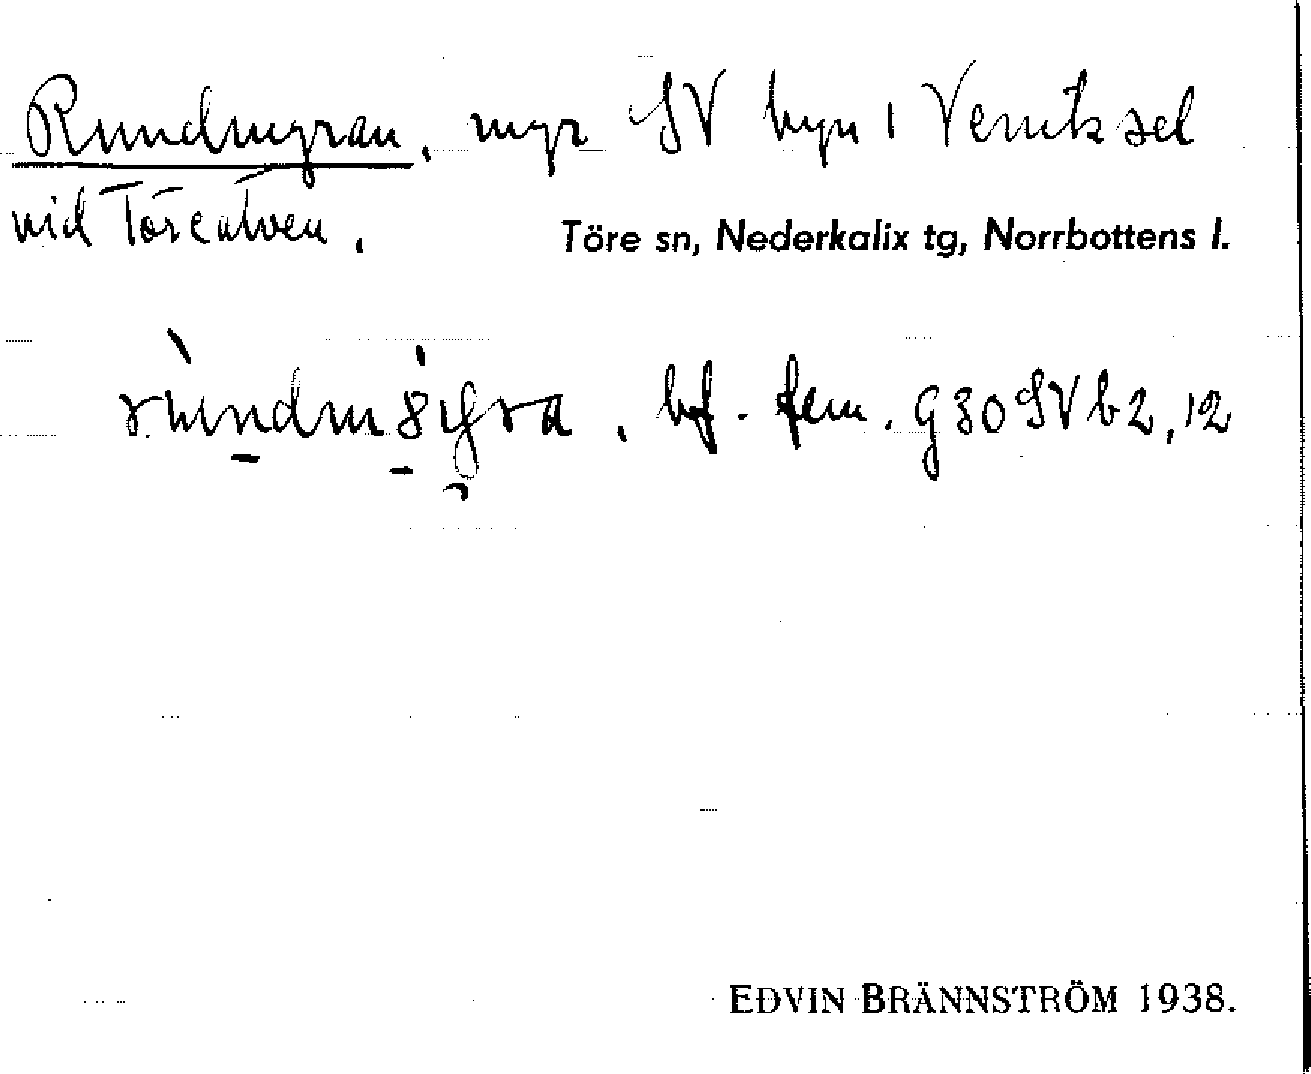 Rundmyran, myr SV byn i Verniksel
vid Töreälven.
Töre sn, Nederkalix tg, Norrbottens l.
bf. fem. G30SVb2,12
EDVIN BRÄNNSTRÖM 1938.